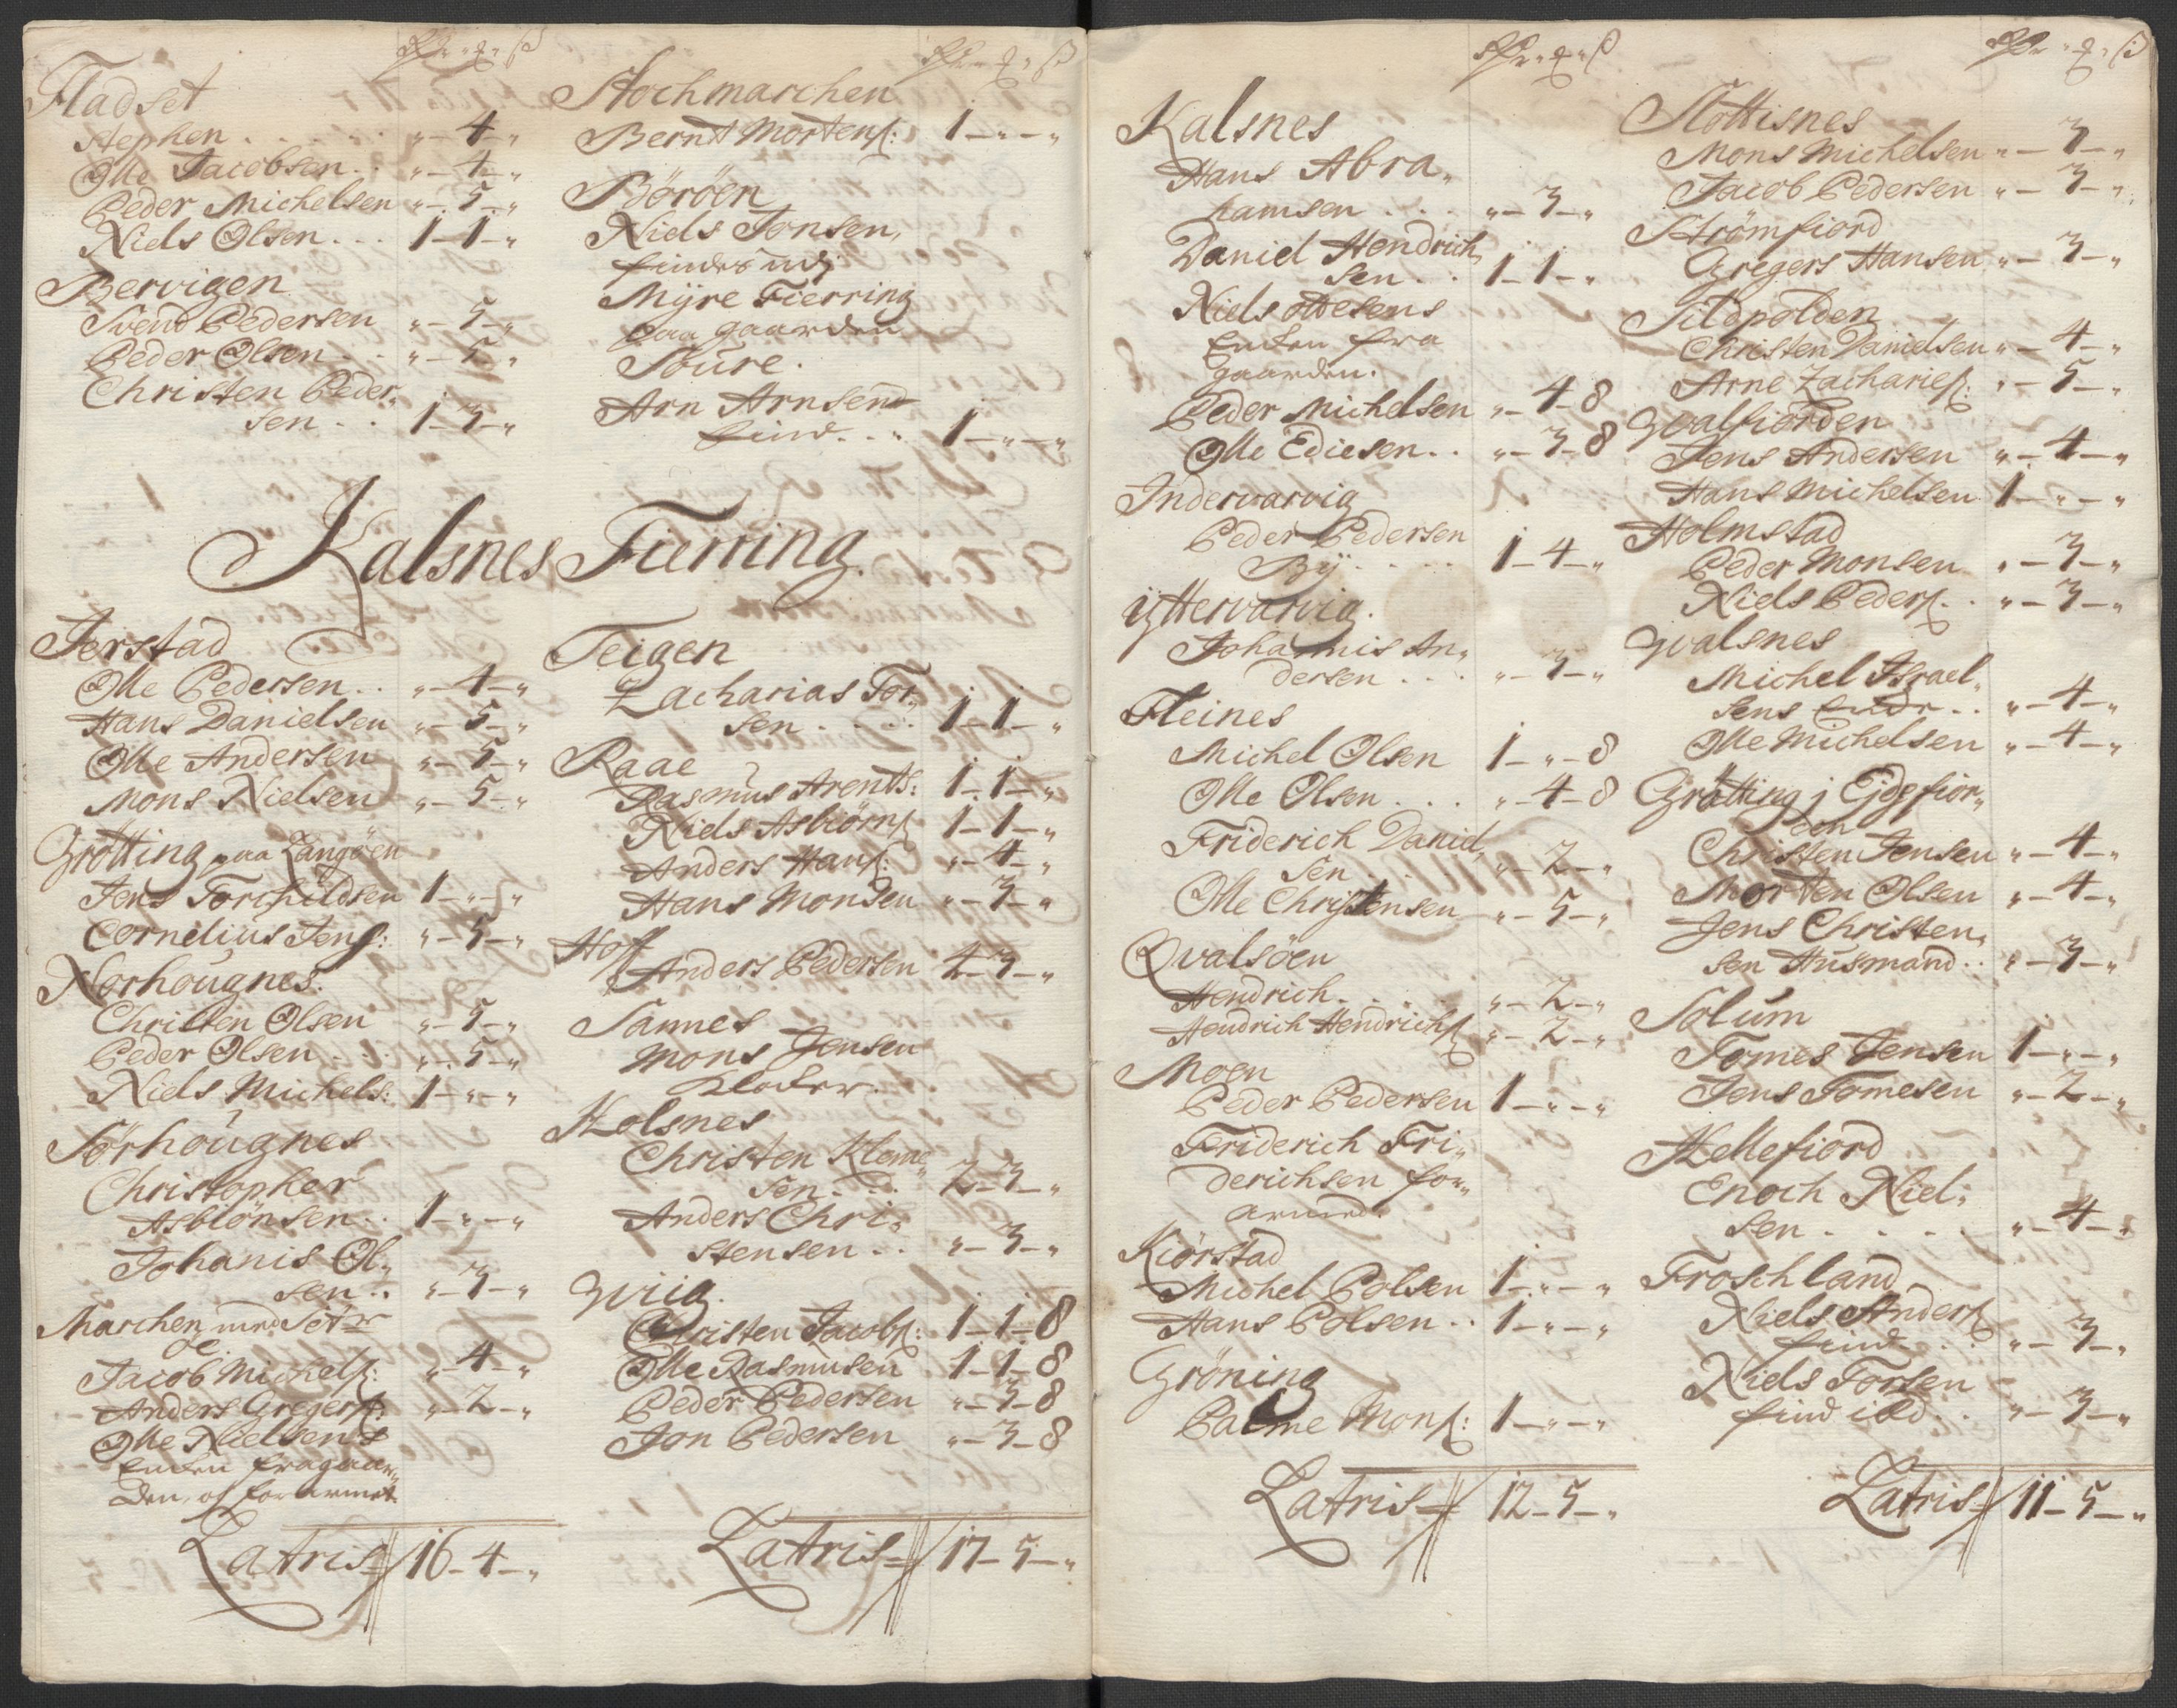 Fladset
Stephen . . . . . „ – 4 – „
Olle Jacobsen . . „ – 4 – „
Peder Michelsen „ – 5 – „
Niels Olsen . . . 1 – 1 – „
Bervigen
Svend Pedersen „ – 5 – „
Peder Olsen . . „ – 5 „
Christen Peder„
sen . . 1 – 3 – „
Stochmarchen
Bernt Mortens: 1 – „ – „
Böröen
Niels Jonsen,
findes udj
Mÿre Fierring
paa gaarden
Soure.
Arn Arnsen
find . . „ 1 – „ – „
Kalsnes Fierring
Jerstad
Olle Pedersen . . „ – 4 – „
Hans Danielsen „ – 5 – „
Olle Andersen „ – 5 – „
Mons Nielsen „ – 5 – „
Grötting paa Langöen
Jens Torchildsen 1 – „ – „
Cornelius Jens: „ – 5 – „
Norhougnes.
Christen Olsen „ – 5 – „
Peder Olsen . . . „ – 5 – „
Niels Michels: 1 – „ – „
Sörhougnes
Christopher
Asbiönsen . . 1 – „ – „
Johanis Ol„
sen . . „ – 3 – „
Marchen med Set
Jacob Michels: „ – 4 – „
Anders Gregers: „ – 2 – „
Olle Nielsens
Encken fra gaar„
den, og forarmet
Latris 16 – 4 – „
Teigen
Zacharias Tor„
sen . . . . 1 – 1 – „
Raae
Rasmus Arents: 1 – 1 – „
Niels Asbiörns 1 – 1 – „
Anders Hans: „ – 4 – „
Hans Monsen „ – 3 – „
Hoff
Anders Pedersen 4 – 3 – „
Sannes
Mons Jensen
Klocker.
Holsnes
Christen Kleme„
sen . . . 2 – 3 – „
Anders Chri„
stensen . . „ – 3 – „
Gviig.
Christen Jacobs: 1 – 1 – 8
Olle Rasmusen 1 – 1 – 8
Peder Pedersen „ – 3 – 8
Jon Pedersen „ – 3 – 8
Latris 17 – 5 – „
Kalsnes
Hans Abra„
hamsen . . . „ – 3 – „
Daniel Hendrich„
sen . . 1 – 1 – „
Niels Ottesens
Encken fra
gaarden.
Peder Michelsen „ – 4 – 8
Olle Ediesen . . „ – 3 – 8
Indervarvig
Peder Pedersen
Bÿ . . . . 1 – 4 – „
ÿttervarvig.
Johannis An„
dersen . . . „ – 3 – „
Fleines
Michel Olsen 1 – „ – 8
Olle Olsen . . . „ – 4 – 8
Friderich Daniel„
sen . . . . „ – 2 – „
Olle Christensen „ – 5 – „
Qvalsöen
Hendrich . . . . „ – 2 – „
Hendrich Hendrichs „ – 2 – „
Moen
Peder Pedersen 1 – „ – „
Friderich Fri„
derichsen for„
armed.
Kiörstad
Michel Polsen 1 – „ – „
Hans Polsen . . 1 – „ – „
Gröning
Palme Mons: 1 – „ – „
Latris 12 – 5 – „
Slottisnes
Mons Michelsen „ – 3 – „
Jacob Pedersen „ – 3 – „
Strömfiord
Gregers Hansen „ – 3 – „
Sildpolden
Christen Danielsen „ – 4 – „
Arne Zacharies: „ – 5 – „
Gvalfiorden
Jens Andersen „ – 4 – „
Hans Michelsen 1 – „ – „
Holmstad
Peder Monsen „ – 3 – „
Niels Peders . . „ – 3 – „
Gvalsnes
Michel Israel„
sens Encke . . „ – 4 – „
Olle Michelsen „ – 4 – „
Grötting j Eidsfior„
den
Christen Jensen „ – 4 – „
Morten Olsen „ – 4 – „
Jens Christen„
sen Husmand . . „ – 3 – „
Solum
Tomes Jensen 1 – „ – „
Jens Tomesen „ – 2 – „
Hellefiord
Enoch Niel„
sen . . . . . „ – 4 – „
Froschland
Niels Anders
find . . . „ – 3 – „
Niels Torsen
find ibd. . „ – 3 – „
Latris 11 – 5 – „